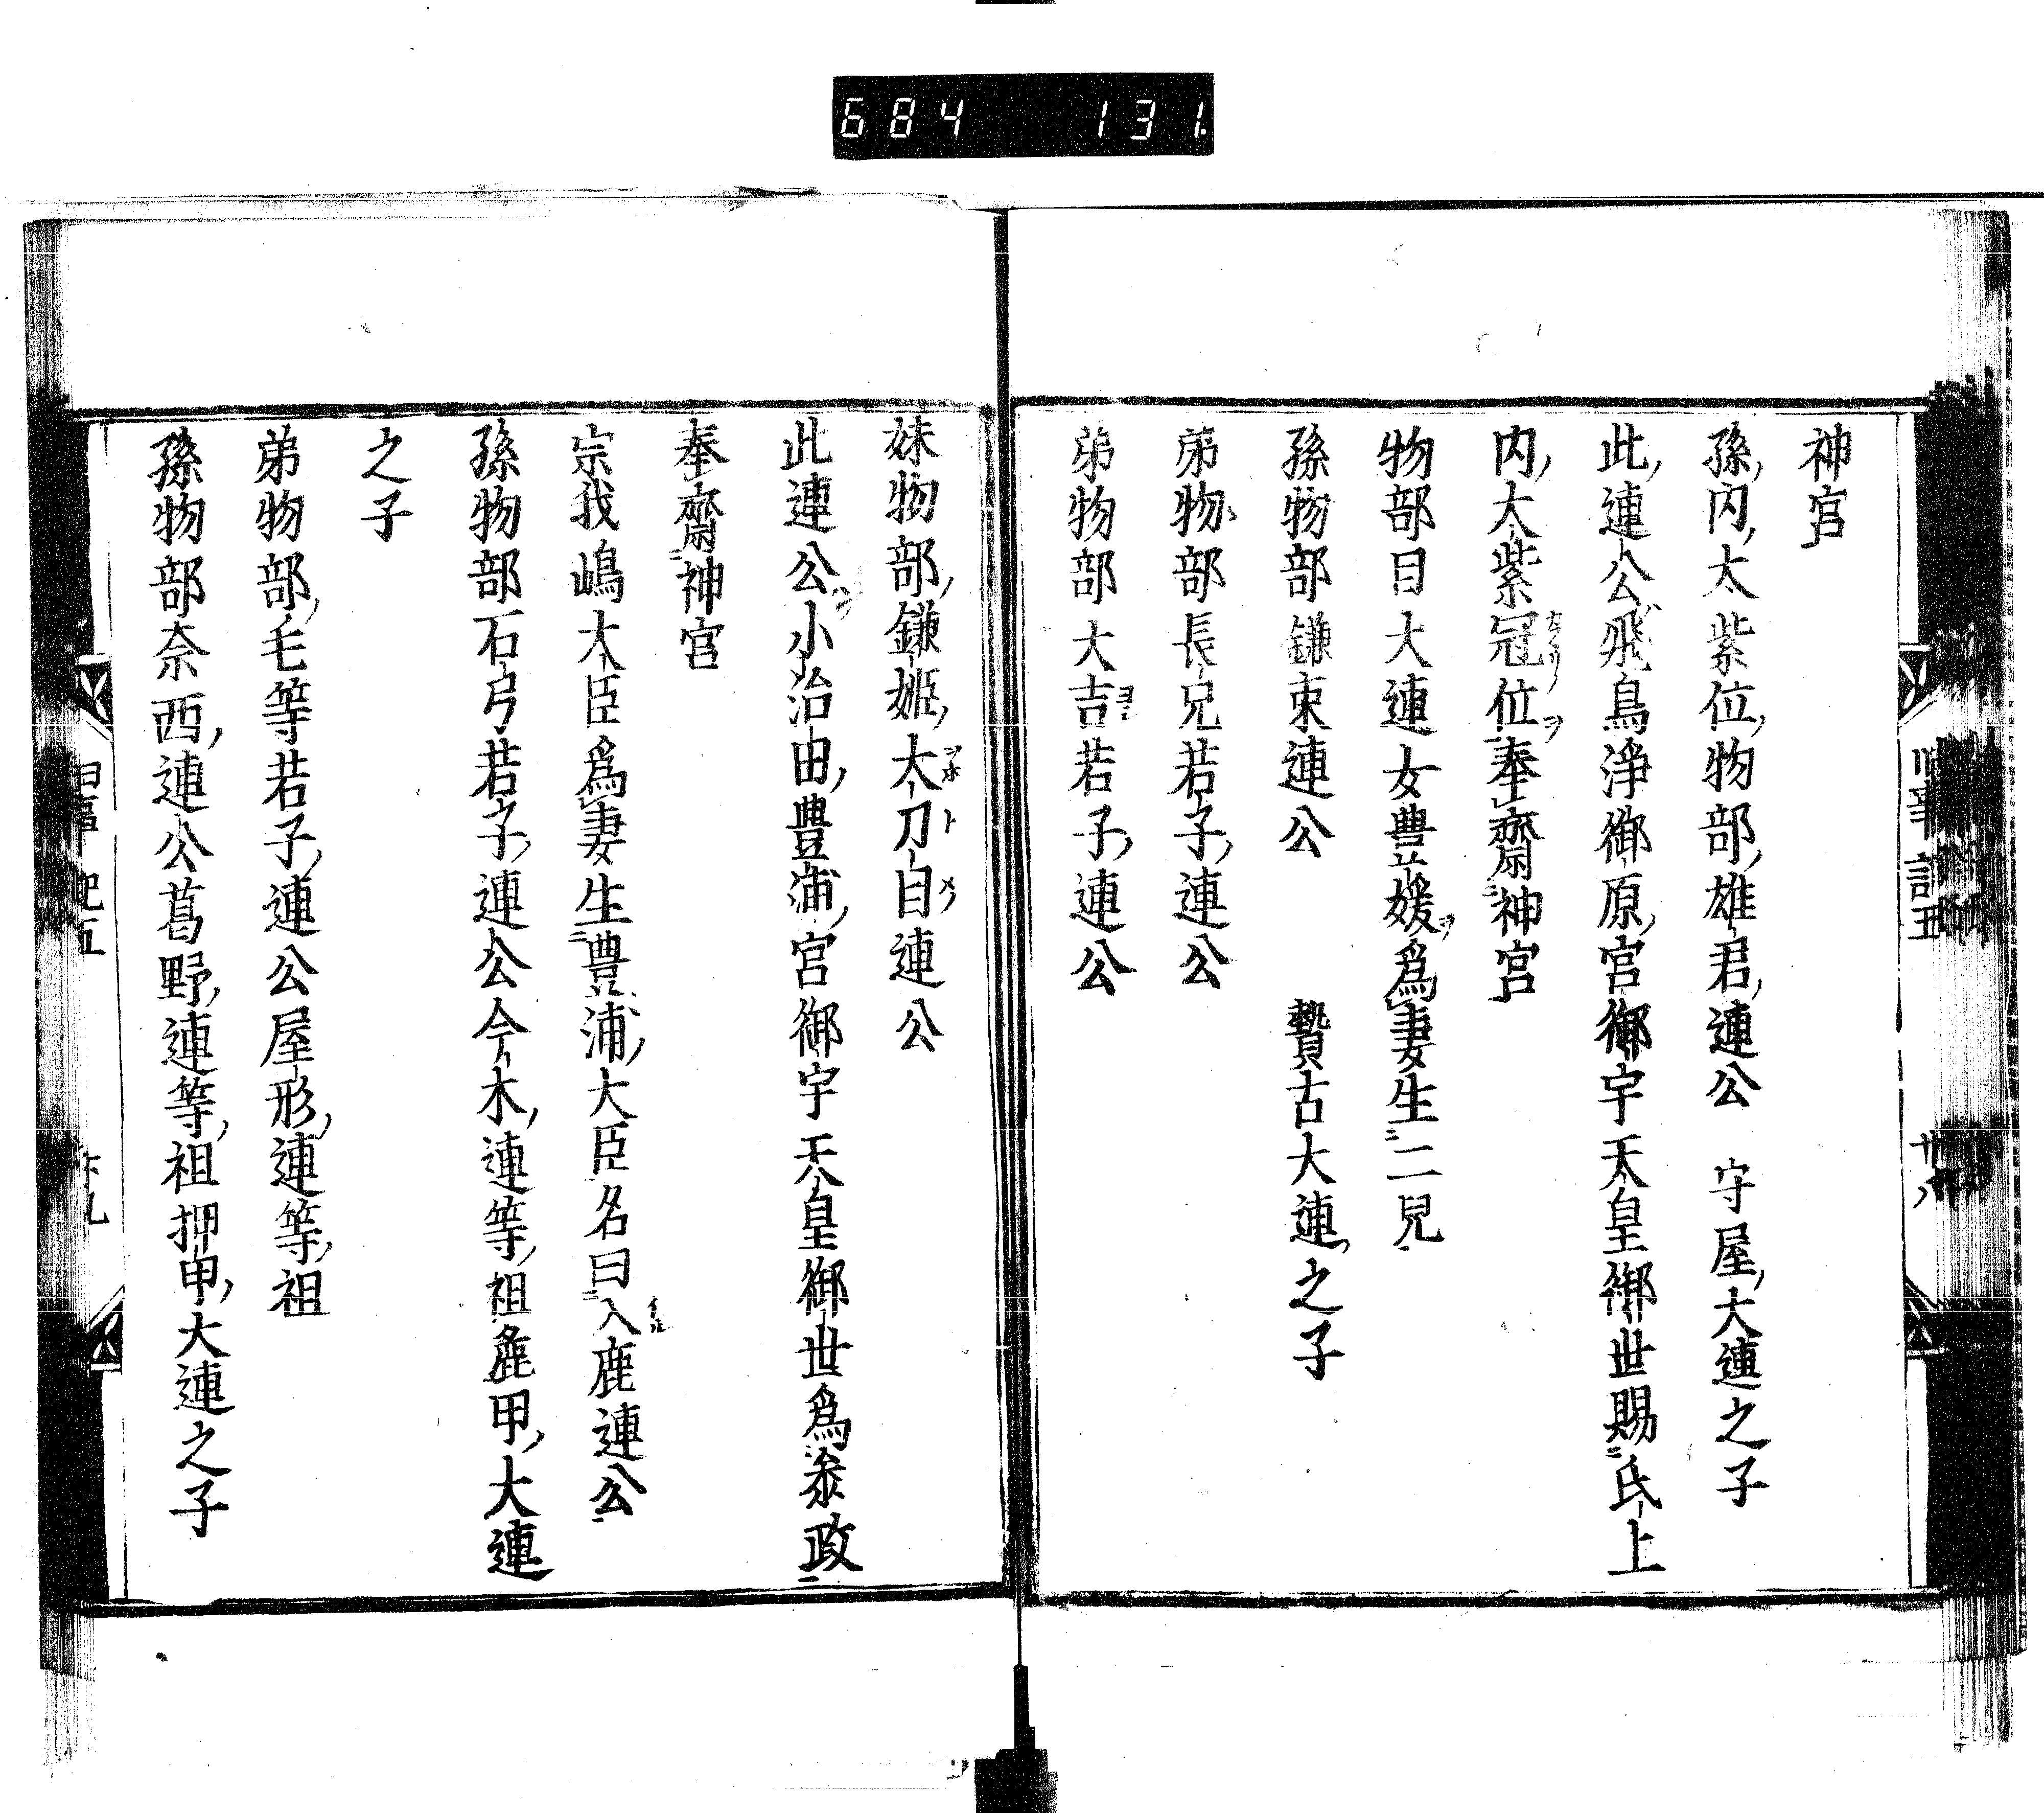 684 131
神宮
孫内太紫位物部雄君連公 守屋大連之子
此連公飛鳥淨御原宮御宇天皇御世賜氏上
内大紫冠位奉齋神宮
物部目大連女豊媛爲妻生二兒
孫物部鎌束連公 贄古大連之子
弟物部長兄若子連公
弟物部大吉若子連公
妹物部鎌姫大刀自連公
此連公小治田豊浦宮御宇天皇御世爲叅政
奉齋神宮
宗我嶋大臣爲妻生豊浦大臣名曰入鹿連公
孫物部石弓若子連公今木連等祖麁甲大連
之子
弟物部毛等若子連公屋形連等祖
孫物部奈西連公葛野連等祖押甲大連之子